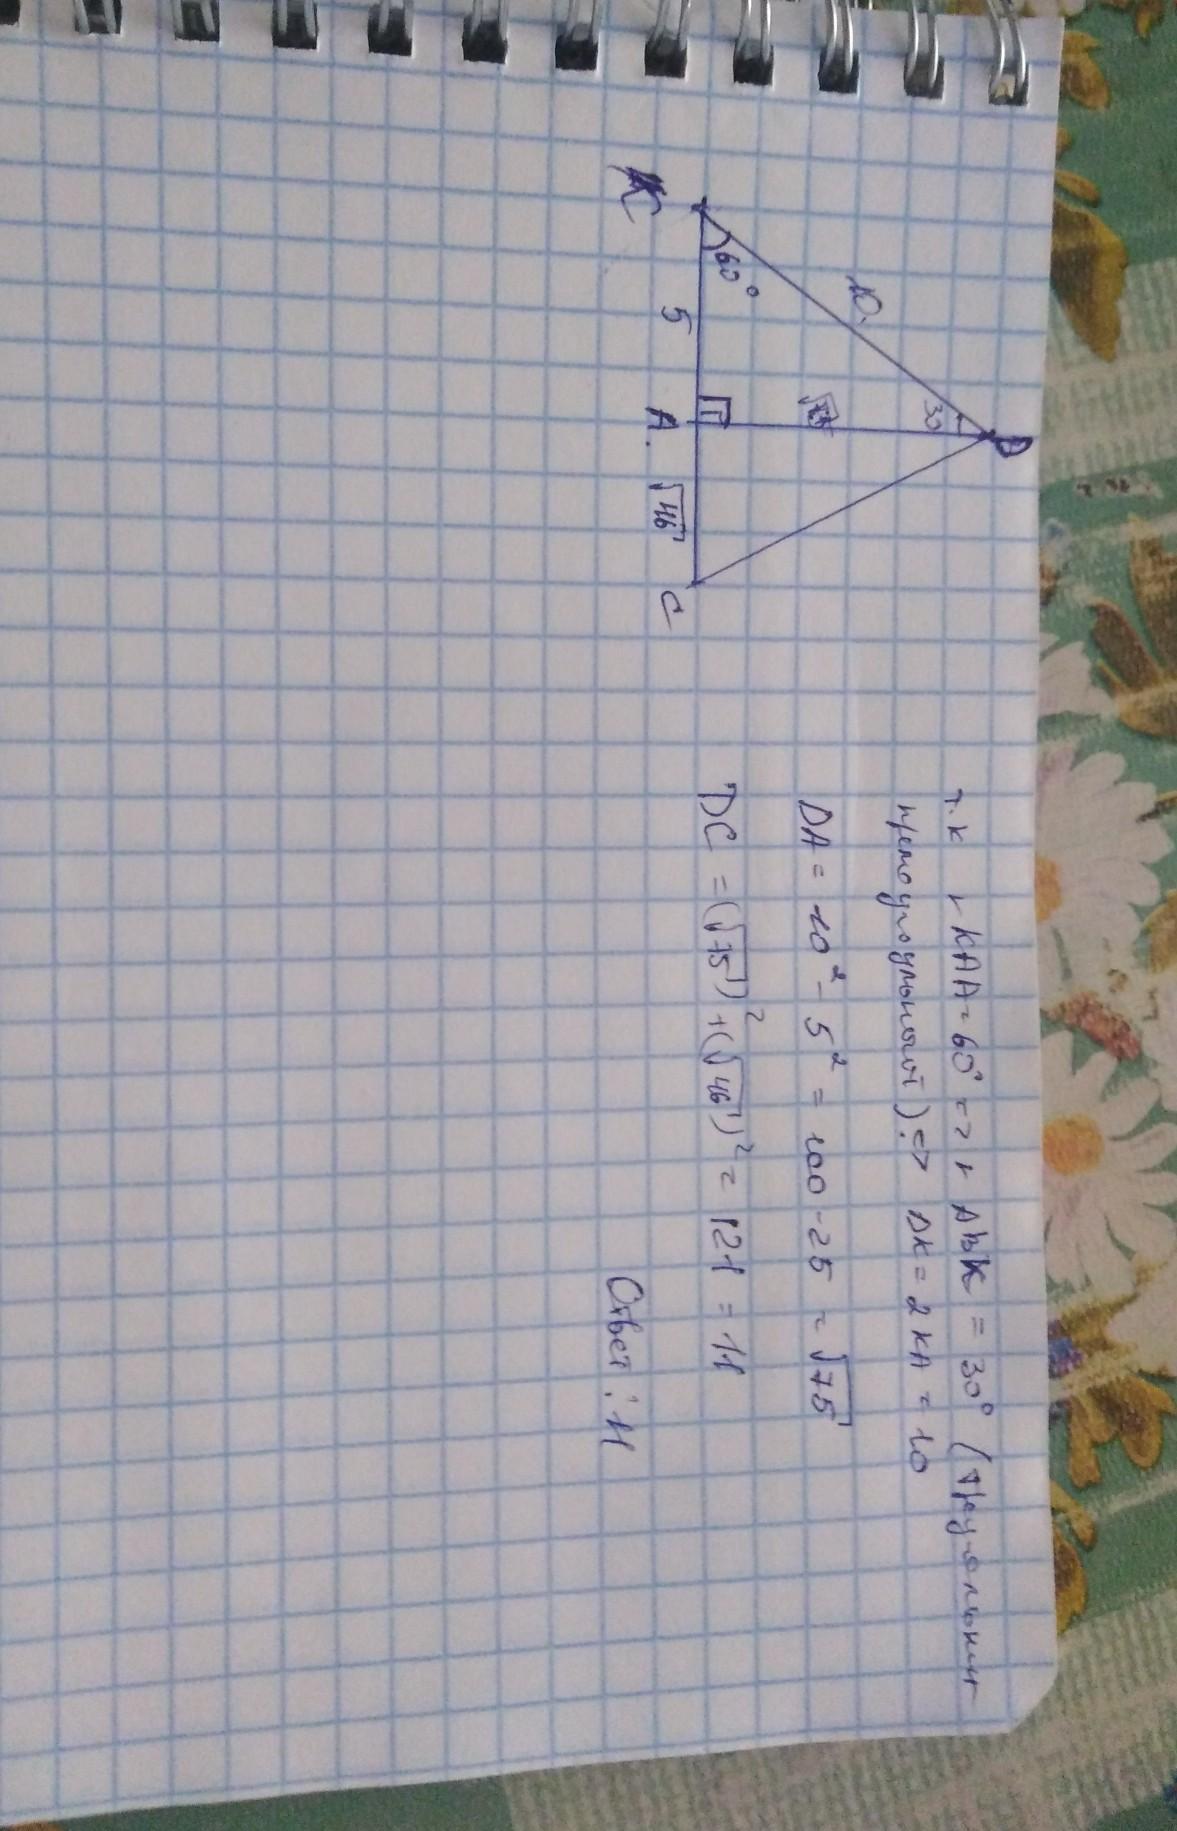 D
30
10.
√75
60°
К 5 А. √46 С
т.к ∠ КДА = 60° => ∠ АДК = 30° (треугольник
прямоугольный) => ДК = 2 КА = 10
DA = 10² - 5² = 100 - 25 = √75
DC = (√75)² + (√46)² = 121 = 11
Ответ: 11